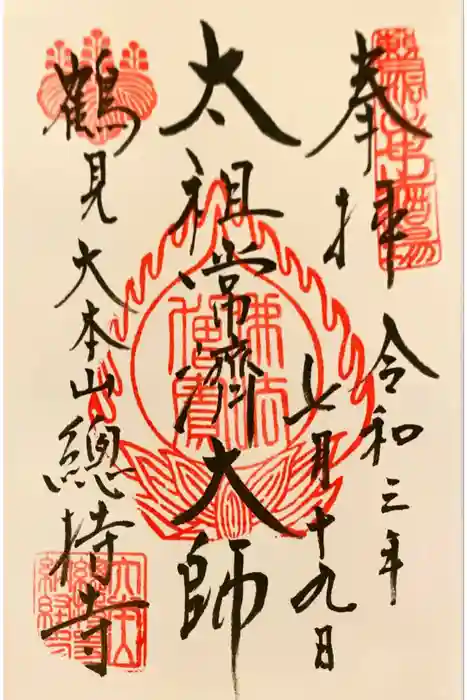 奉拝
令和三年
七月十九日
太祖常濟大師
佛法僧寳
鶴見大本山總持寺